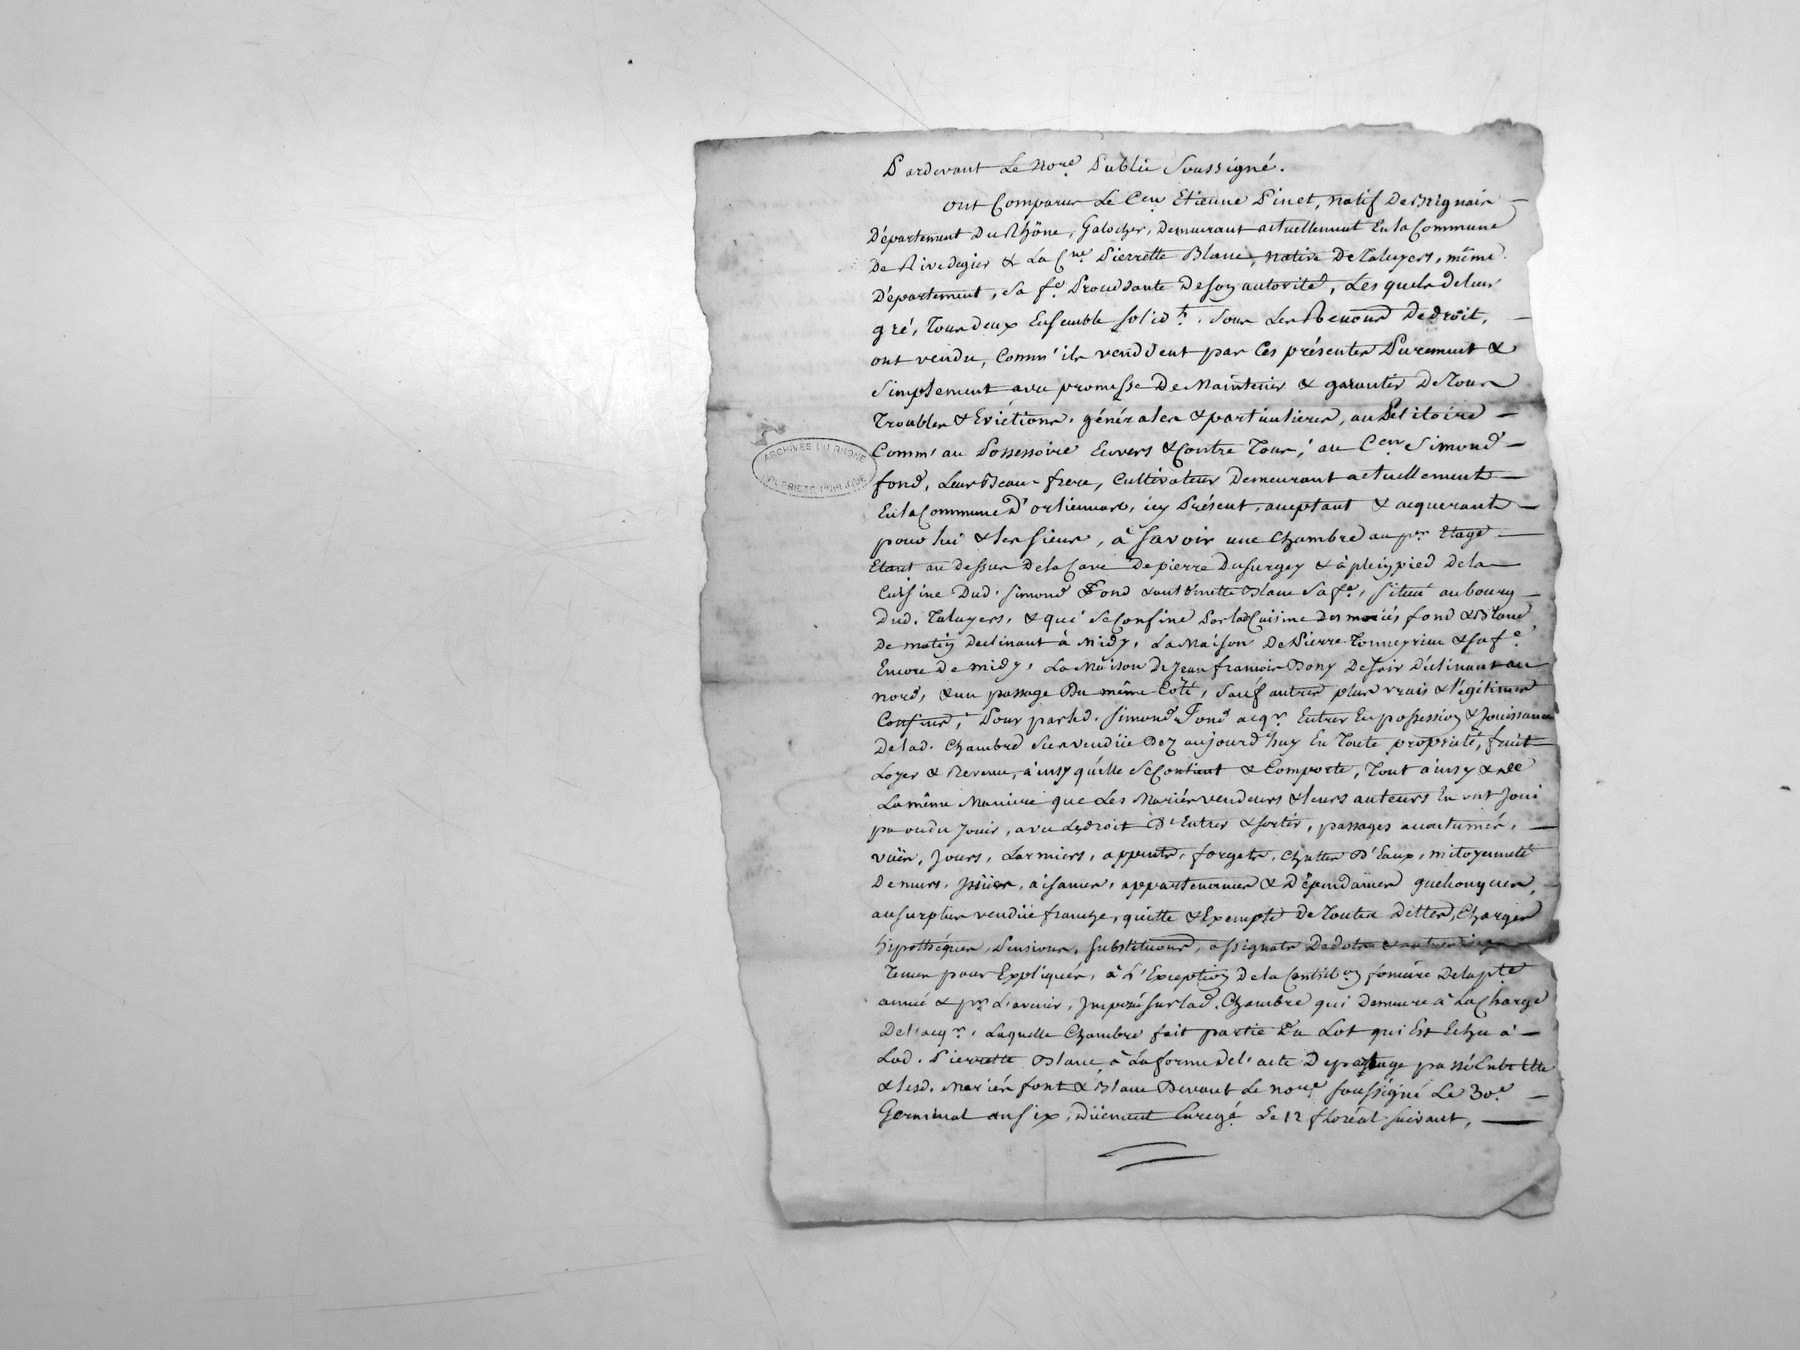 Pardevant Le No.re Public Soussigné.
ont Comparus Le C.en Etienne Pinet, natif de Brignais
Département Du Rhône, Galocher, Demeurant actuellement En la Commune
De Rivedegier & La C.ne Pierrette Blanc, native De Taluyers, même
Département, sa f.e Procédante De son autorité, Les quels de leur
gré, Tous deux Ensemble solid.t, sous Les Renons De droit,
ont vendu, Comm' ils vendent par Ces présentes Purement &
Simplement avec promesse De Maintenir & garantir De Tous
Troubles & Evictions, générales & particulieres, au Petitoire
Comm' au Possessoire Envers & Contre Tous, au C.en Simond
fond, Leur Beau-frere, Cultivateur Demeurant actuellement
En la Commune D'orlienas, icy Présent, acceptant & acquerant
pour lui & les siens, à savoir une Chambre au p.er Etage
Etant au dessus De la Cave De pierre Dusurgey & à plein pied de la
Cuisine Dud. Simond Fond & Blanc Sa f.e, située au bourg
Dud. Taluyers, & qui se Confine Par la Cuisine des mariés fond & Blanc
De matin Declinant à Midy, La Maison De Pierre & sa f.e
Encore De midy, La Maison De Jean francois Bony De soir Déclinant au
nord, & un passage Du même Côté, Sauf autres plus vrais & légitimes
Confins, Pour par led. Simond Fond acq.r Entrer En possession & Jouissance
De lad. Chambre Sus vendüe Dez aujourd'huy En Toute propriété, fruit
Loyer & Revenu, ainsy qu'elle se Contient & Comporte, Tout ainsy & de
La même Maniere que Les Mariés vendeurs & leurs auteurs En ont Joui
pu ou du Jouir, avec Le droit D'Entrer & sortir, passages accoutumés,
vües, Jours, Larmiers, appents, forgets, Chuttes D'Eaux, mitoyenneté
De murs, Issües, aisances, appartenances & Dépendances quelconques,
au surplus vendüe franche, quitte & Exempte De Toutes Dettes, Charges
hipothéques, Pensions, substitutions, assignats De dots &
Tenus pour Expliqués, à L'Exception De la Contrib.on fonciere De la p.te
année & p.r L'avenir, Imposé sur lad. Chambre qui Demeure à La Charge
De l'acq.r, Laquelle Chambre fait partie Du Lot qui Est Echu à
Lad. Pierrette Blanc, à La forme de l'acte De partage passé Entr Elle
& lesd. Mariés font & Blanc Devant Le no.re soussigné Le 30.e
Germinal an six, Düement Enregé. Le 12 floréal suivant,
ARCHIVES DU RHONE
PROPRIETE PUBLIQUE